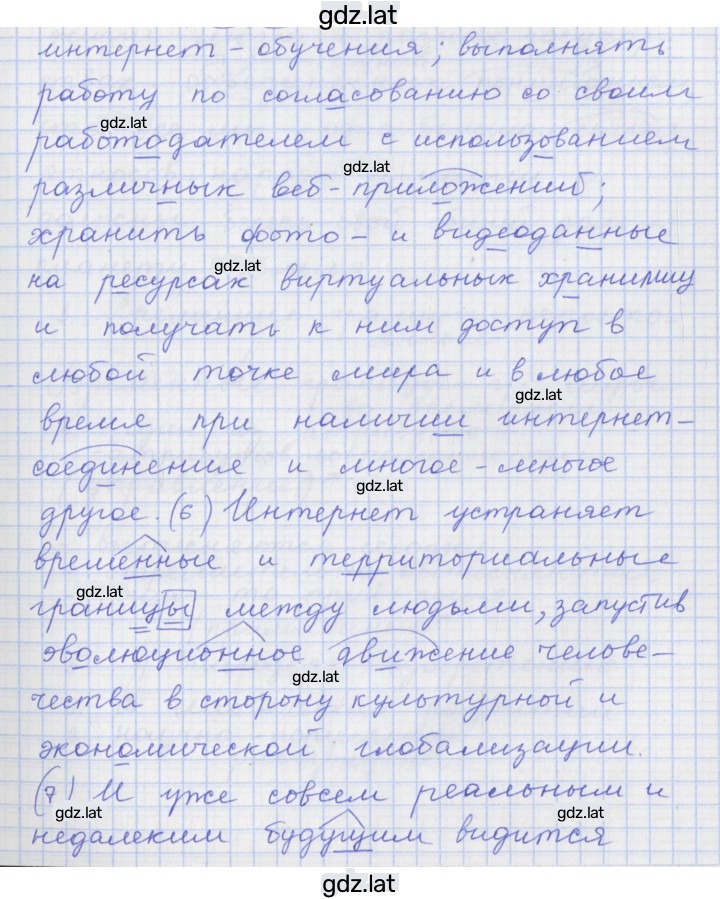 gdz.lat
интернет-обучения; выполнять
работу по согласованию со своим
gdz.lat
работодателем с использованием
gdz.lat
различных веб-приложений;
хранить фото- и видеоданные
gdz.lat
на ресурсах виртуальных хранилищ
и получать к ним доступ в
любой точке мира и в любое
gdz.lat
время при наличии интернет-
соединения и многое-многое
gdz.lat
другое. (6) Интернет устраняет
временные и территориальные
gdz.lat
границы между людьми, запустив
эволюционное движение челове-
gdz.lat
чества в сторону культурной и
экономической глобализации.
(7) И уже совсем реальным и
gdz.lat gdz.lat
недалеким будущим видится
gdz.lat